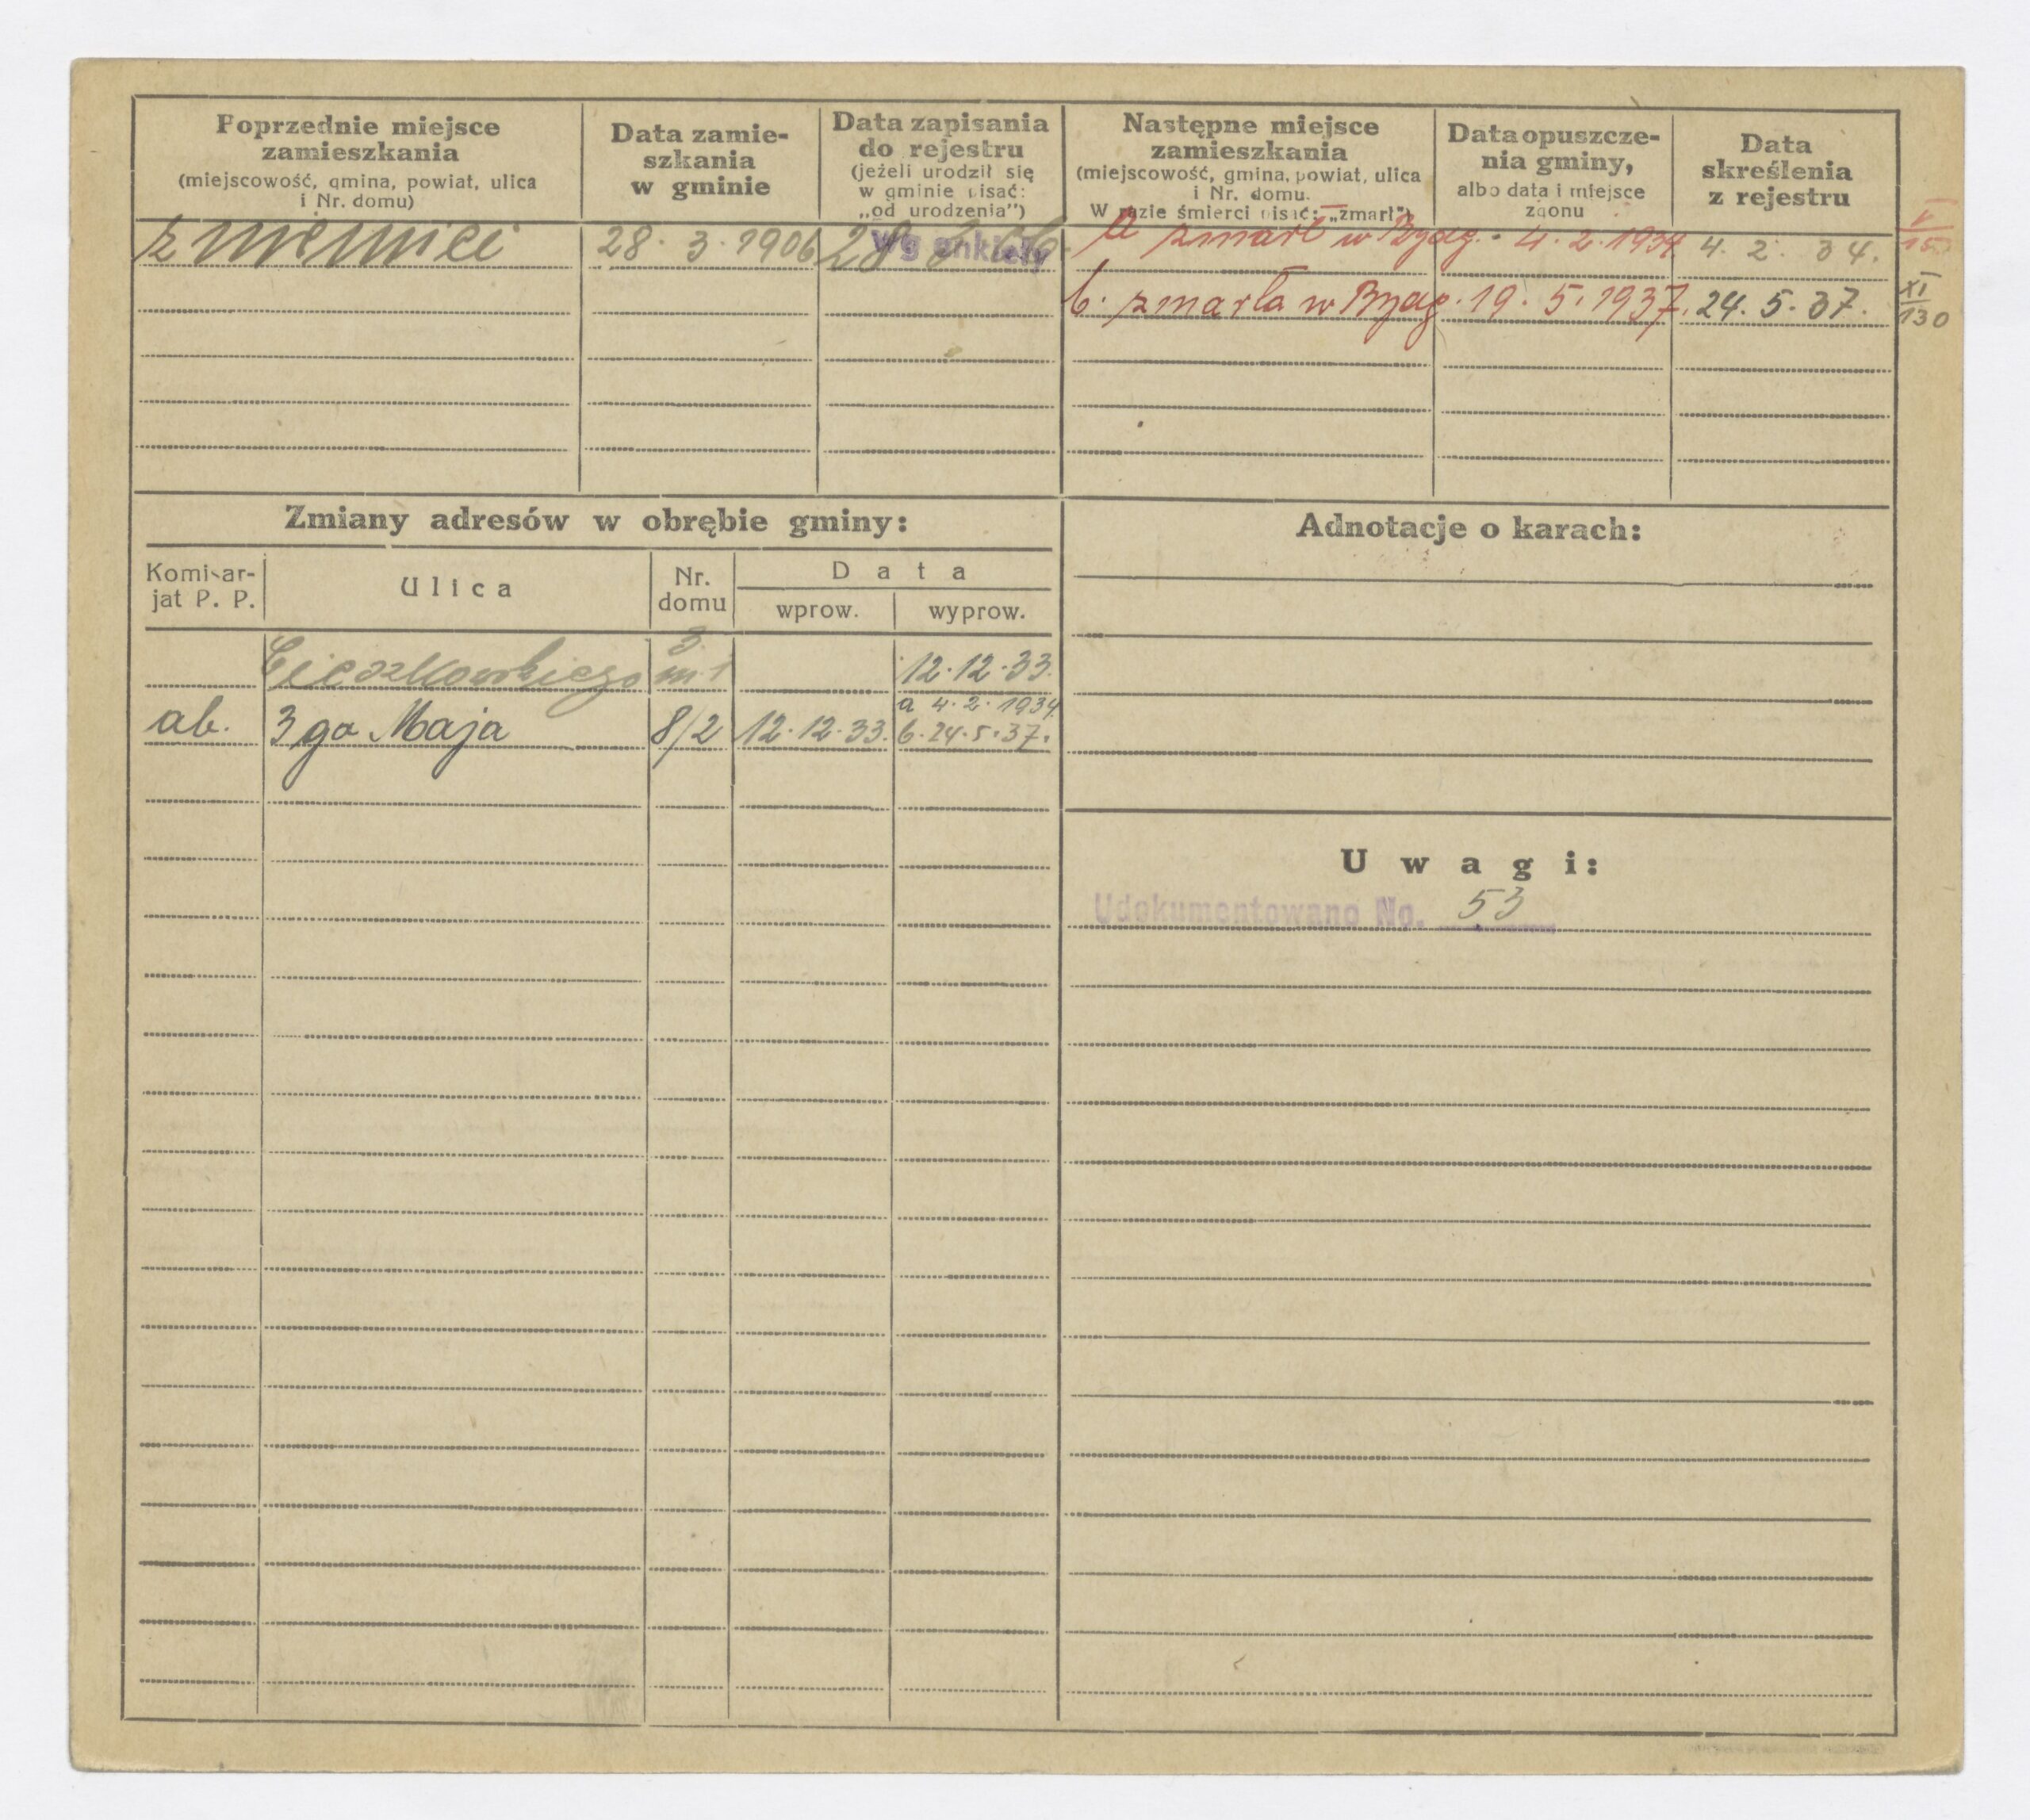 Poprzednie miejsce
zamieszkania
(miejscowość, gmina, powiat, ulica
i Nr. domu)
Data zamie-
szkania
w gminie
Data zapisania
do rejestru
(jeżeli urodził się
w gminie pisać:
„od urodzenia")
Następne miejsce
zamieszkania
(miejscowość, gmina, powiat, ulica
i Nr. domu.
W razie śmierci pisać: „zmarł")
Data opuszcze-
nia gminy,
albo data i miejsce
zgonu
Data
skreślenia
z rejestru
z niemiec 28. 3. 1906 Wg ankiety a zmarł w Bydg. 4. 2. 1934. 4. 2. 34. V
b. zmarła w Bydg. 19. 5. 1937. 24. 5. 37. XI/130
Zmiany adresów w obrębie gminy:
Komisar-
jat P. P.
Ulica
Nr.
domu
Data
wprow.
wyprow.
Cieszkowskiego 3 m. 1 12.12.33.
ab. 3 go Maja 8/2 12.12.33. a 4.2.1934. b. 24.5.37.
Adnotacje o karach:
Uwagi:
Udokumentowano No. 53